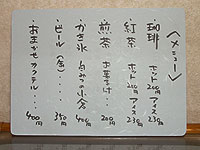 〈メニュー〉
珈琲 ホット200円 アイス230円
紅茶 ホット200円 アイス230円
煎茶 お菓子付・・・200円
・かき氷 白みつ小倉 400円
・ビール(缶)・・・・350円
・おまかせカクテル・・・400円